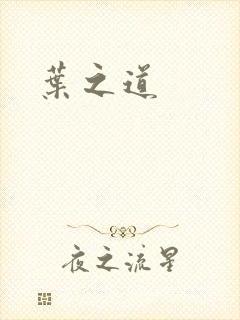 葉之道
夜之流星